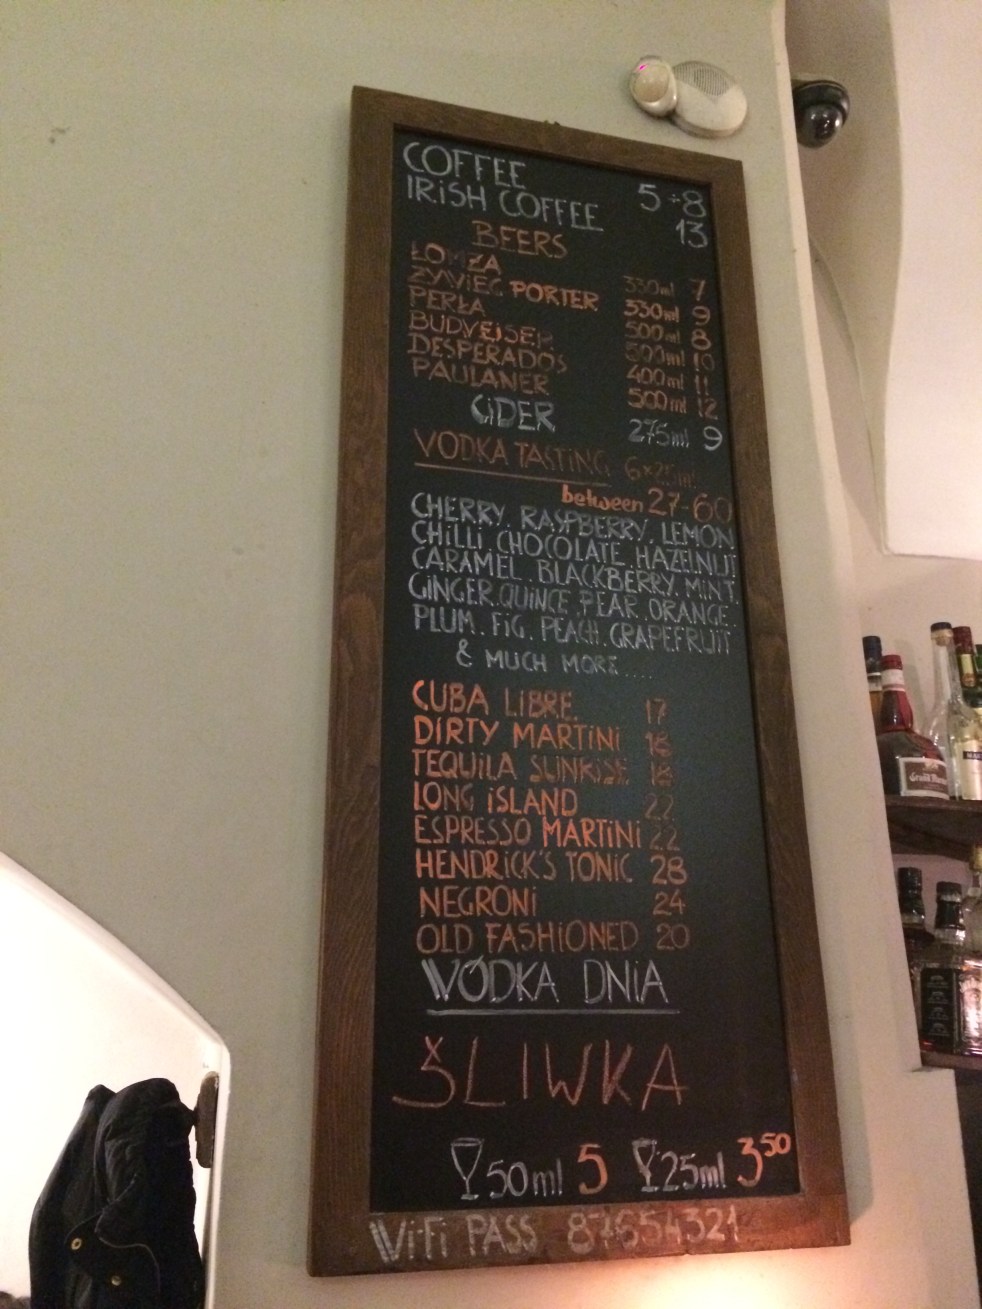 COFFEE 5÷8
IRISH COFFEE 13
BEERS
ŁOMŻA 330ml 7
ŻYWIEC PORTER 330ml 9
PERŁA 500ml 8
BUDVEISER 500ml 10
DESPERADOS 400ml 11
PAULANER 500ml 12
CIDER 275ml 9
VODKA TASTING 6×25ml
between 27-60
CHERRY. RASPBERRY. LEMON
CHILLI. CHOCOLATE. HAZELNUT
CARAMEL. BLACKBERRY. MINT
GINGER. QUINCE. PEAR. ORANGE.
PLUM. FIG. PEACH. GRAPEFRUIT
& MUCH MORE....
CUBA LIBRE 17
DIRTY MARTINI 18
TEQUILA SUNRISE 18
LONG ISLAND 22
ESPRESSO MARTINI 22
HENDRICK'S TONIC 28
NEGRONI 24
OLD FASHIONED 20
WÓDKA DNIA
ŚLIWKA
50ml 5 25ml 3⁵⁰
Wi-Fi PASS 87654321